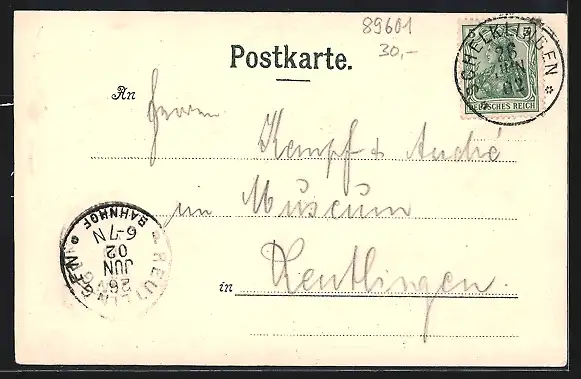 89601
30,-
Postkarte.
SCHELKLINGEN
26
JUN
02
DEUTSCHES REICH
An Herren
Kempf & André
im Museum
in Reutlingen.
REUTLINGEN
26
JUN
02
6-7N
BAHNHOF